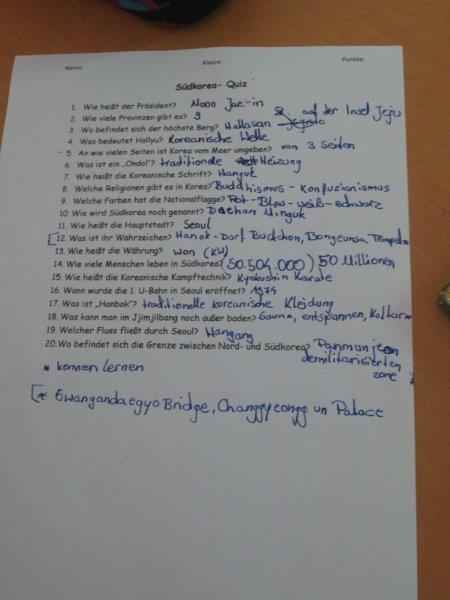 Name: Klasse: Punkte:
Südkorea- Quiz
1. Wie heißt der Präsident? Moon Jae-in
2. Wie viele Provinzen gibt es? 9
3. Wo befindet sich der höchste Berg? Hallasan auf der Insel Jeju
4. Was bedeutet Hallyu? Koreanische Welle
5. An wie vielen Seiten ist Korea vom Meer umgeben? von 3 Seiten
6. Was ist ein „Ondol"? traditionale Heizung
7. Wie heißt die Koreanische Schrift? Hangul
8. Welche Religionen gibt es in Korea? Buddhismus - Konfuzionismus
9. Welche Farben hat die Nationalflagge? Rot-Blau-weiß-schwarz
10. Wie wird Südkorea noch genannt? Daehan Minguk
11. Wie heißt die Hauptstadt? Seoul
[12. Was ist ihr Wahrzeichen? Hanok-Dorf Buckchon, Bongeunsa,
13. Wie heißt die Währung? won (KW)
14. Wie viele Menschen leben in Südkorea? (50.504.000) 50 Millionen
15. Wie heißt die Koreanische Kampftechnik? Kyokushin Karate
16. Wann wurde die 1. U-Bahn in Seoul eröffnet? 1974
17. Was ist „Hanbok"? traditionelle koreanische Kleidung
18. Was kann man im Jjimjilbang noch außer baden? Sauna, entspannen,
19. Welcher Fluss fließt durch Seoul? Hangang
20. Wo befindet sich die Grenze zwischen Nord- und Südkorea? Panmunjeon
demilitarisierten
zone
* kennen lernen
[* Gwangandaegyo Bridge, Palace